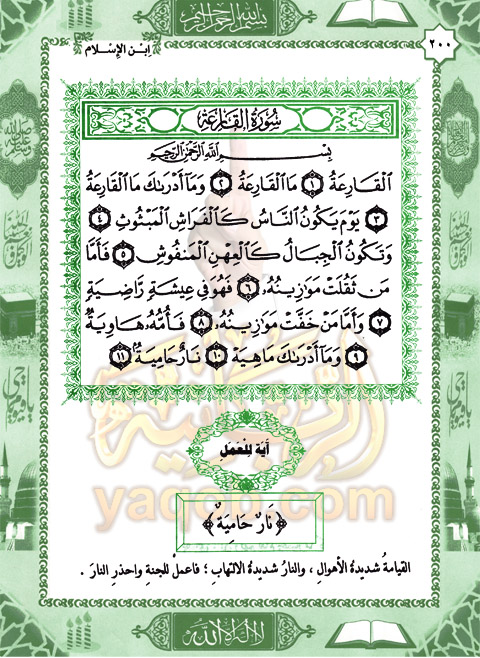 بسم الله الرحمن الرحيم
ابن الإسلام
٢٠٠
سُورَةُ القَارِعَة
بِسْمِ اللَّهِ الرَّحْمَٰنِ الرَّحِيمِ
الْقَارِعَةُ ١ مَا الْقَارِعَةُ ٢ وَمَا أَدْرَىٰكَ مَا الْقَارِعَةُ
٣ يَوْمَ يَكُونُ النَّاسُ كَالْفَرَاشِ الْمَبْثُوثِ ٤
وَتَكُونُ الْجِبَالُ كَالْعِهْنِ الْمَنفُوشِ ٥ فَأَمَّا
مَن ثَقُلَتْ مَوَٰزِينُهُۥ ٦ فَهُوَ فِي عِيشَةٍ رَّاضِيَةٍ
٧ وَأَمَّا مَنْ خَفَّتْ مَوَٰزِينُهُۥ ٨ فَأُمُّهُۥ هَاوِيَةٌ
٩ وَمَا أَدْرَىٰكَ مَا هِيَهْ ١٠ نَارٌ حَامِيَةٌ ١١
آيَة لِلْعَمَلِ
yaqob.com
﴿ نَارٌ حَامِيَةٌ ﴾
القيامةُ شديدةُ الأهوالِ ، والنارُ شديدةُ الالتهابِ ؛ فاعملْ للجنةِ واحذرِ النارَ .
لا إله إلا الله